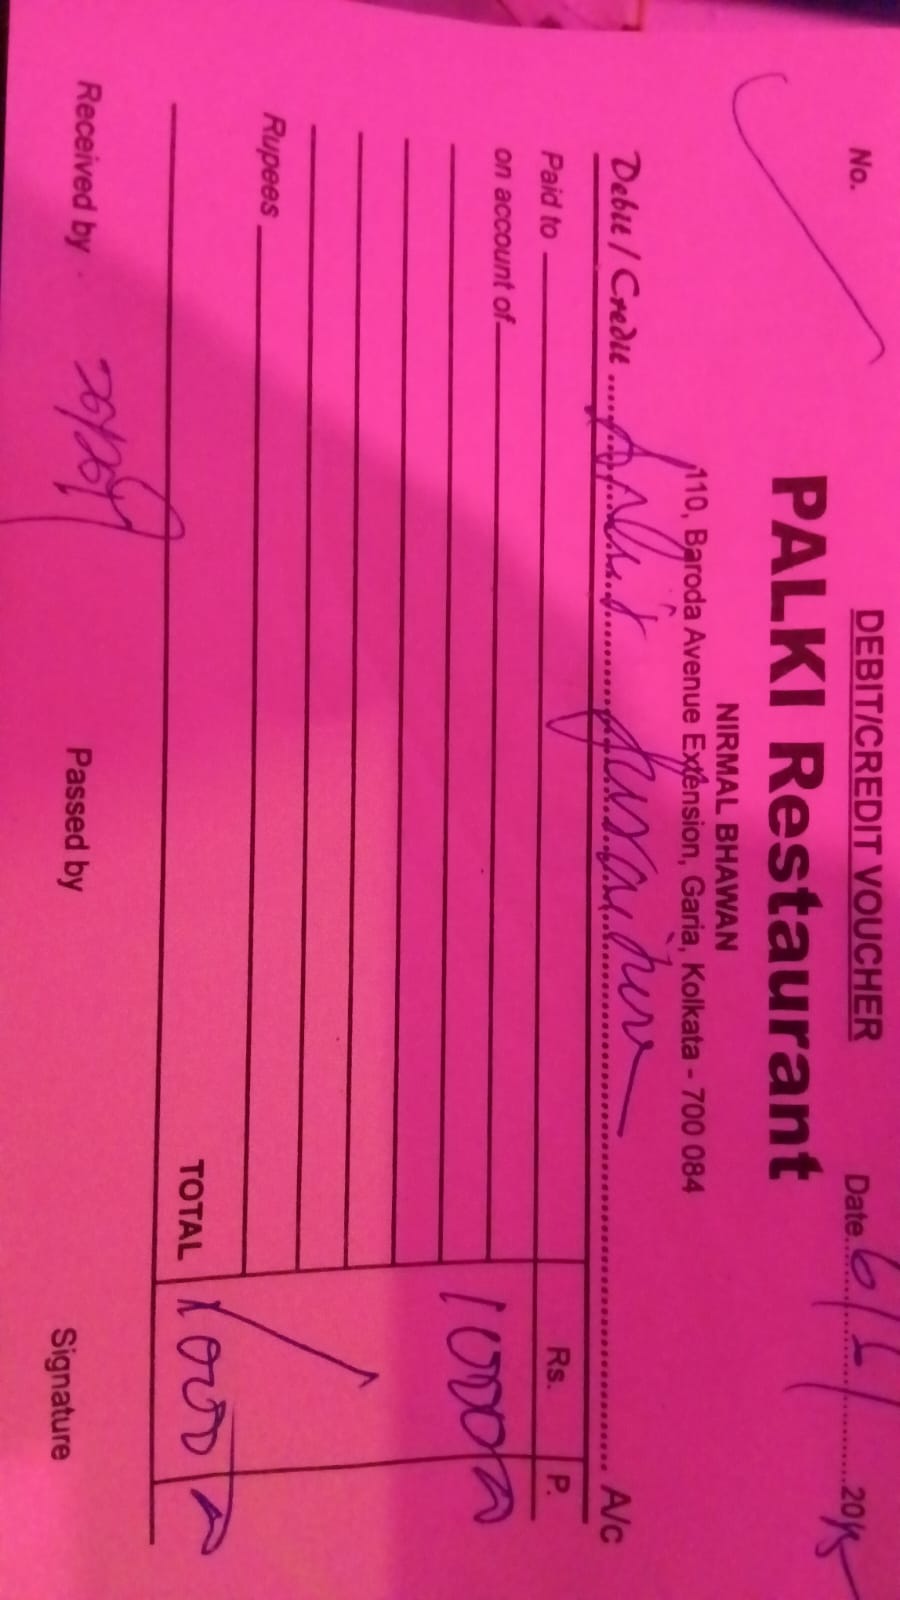 DEBIT/CREDIT VOUCHER
No.
Date 6/5/ 2018
PALKI Restaurant
NIRMAL BHAWAN
110, Baroda Avenue Extension, Garia, Kolkata - 700 084
Debit / Credit A/c
Paid to Rs. P.
on account of
1000
Rupees
TOTAL 1000
Received by Passed by Signature